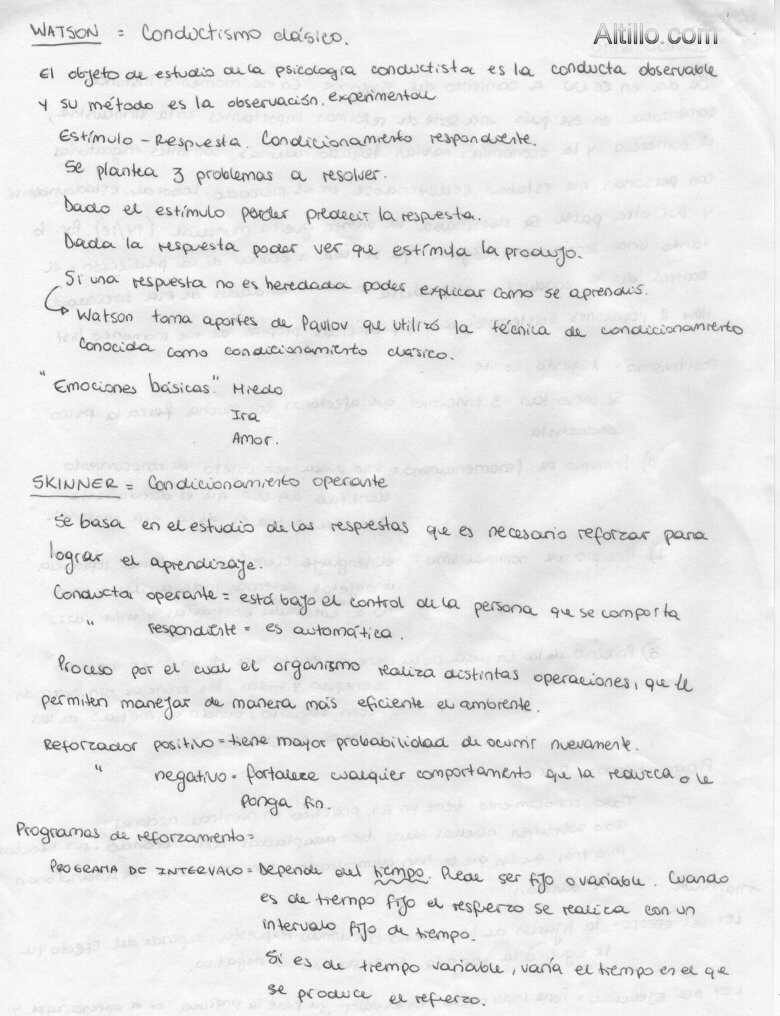 WATSON = Conductismo clásico.
Altillo.com
El objeto de estudio de la psicología conductista es la conducta observable
y su método es la observación experimental
Estímulo - Respuesta. Condicionamiento respondente.
Se plantea 3 problemas a resolver.
Dado el estímulo poder predecir la respuesta.
Dada la respuesta poder ver que estímula la produjo.
Si una respuesta no es heredada poder explicar como se aprendió.
Watson toma aportes de Pavlov que utilizó la técnica de condicionamiento
conocida como condicionamiento clásico.
"Emociones básicas" Miedo
Ira
Amor.
SKINNER = Condicionamiento operante
Se basa en el estudio de las respuestas que es necesario reforzar para
lograr el aprendizaje.
Conducta operante = está bajo el control de la persona que se comporta
" respondente = es automática.
Proceso por el cual el organismo realiza distintas operaciones, que le
permiten manejar de manera más eficiente el ambiente.
Reforzador positivo = tiene mayor probabilidad de ocurrir nuevamente.
" negativo = fortalece cualquier comportamiento que la reduzca o le
ponga fin.
Programas de reforzamiento =
PROGRAMA DE INTERVALO = Depende del tiempo. Puede ser fijo o variable. Cuando
es de tiempo fijo el resfuerzo se realiza con un
intervalo fijo de tiempo.
Si es de tiempo variable, varía el tiempo en el que
se produce el refuerzo.